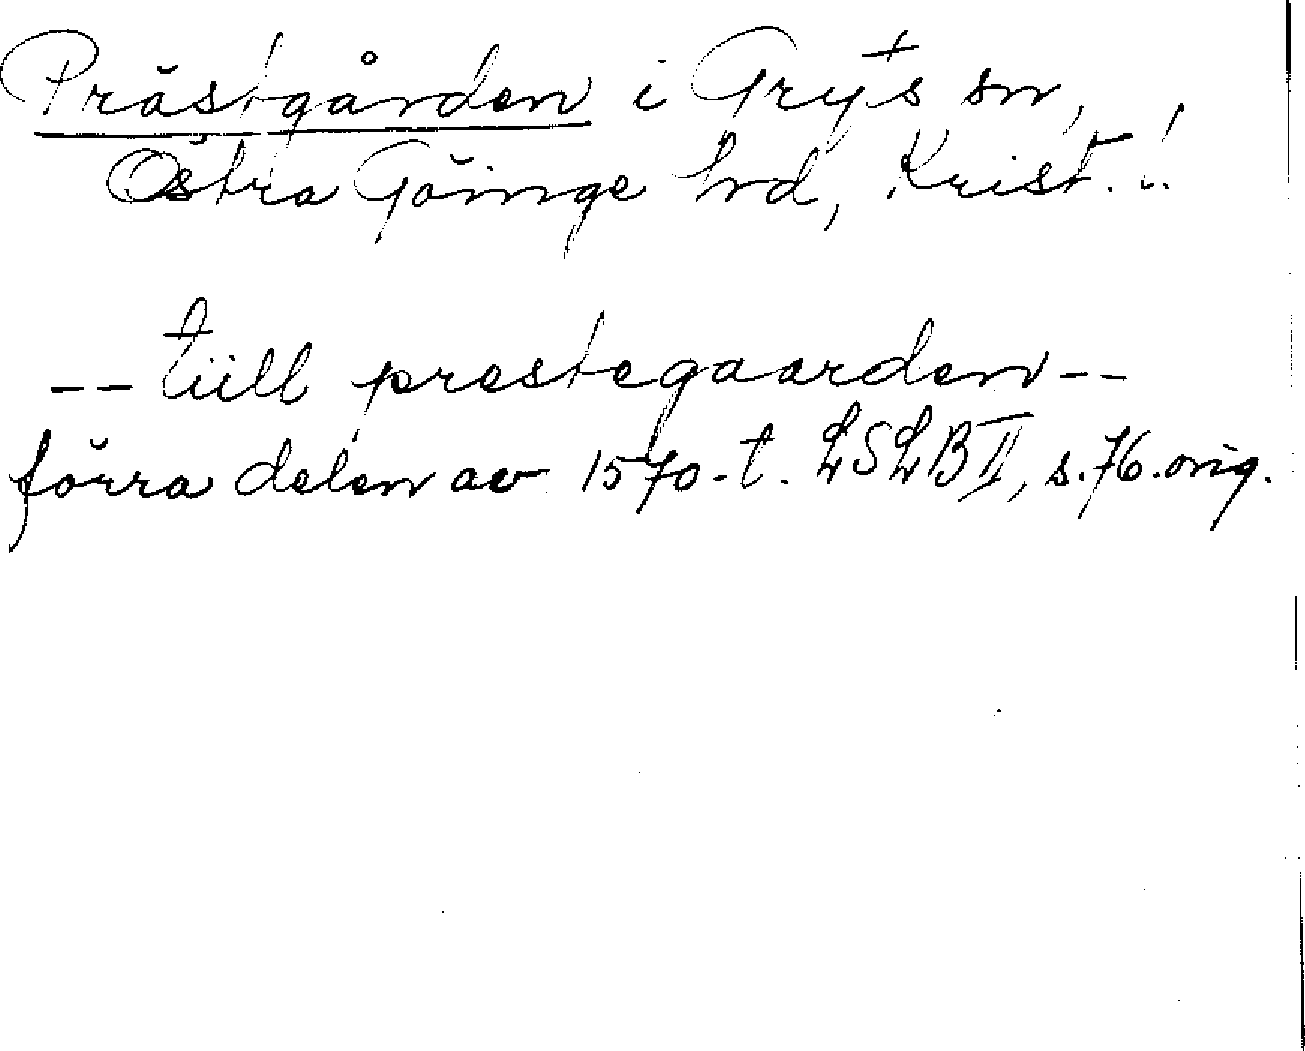 Prästgården i Gryts sn,
Östra Göinge hrd, Krist. l.
-- tiill prestegaarden --
förra delen av 1570-t. LSLB II, s. 76. orig.